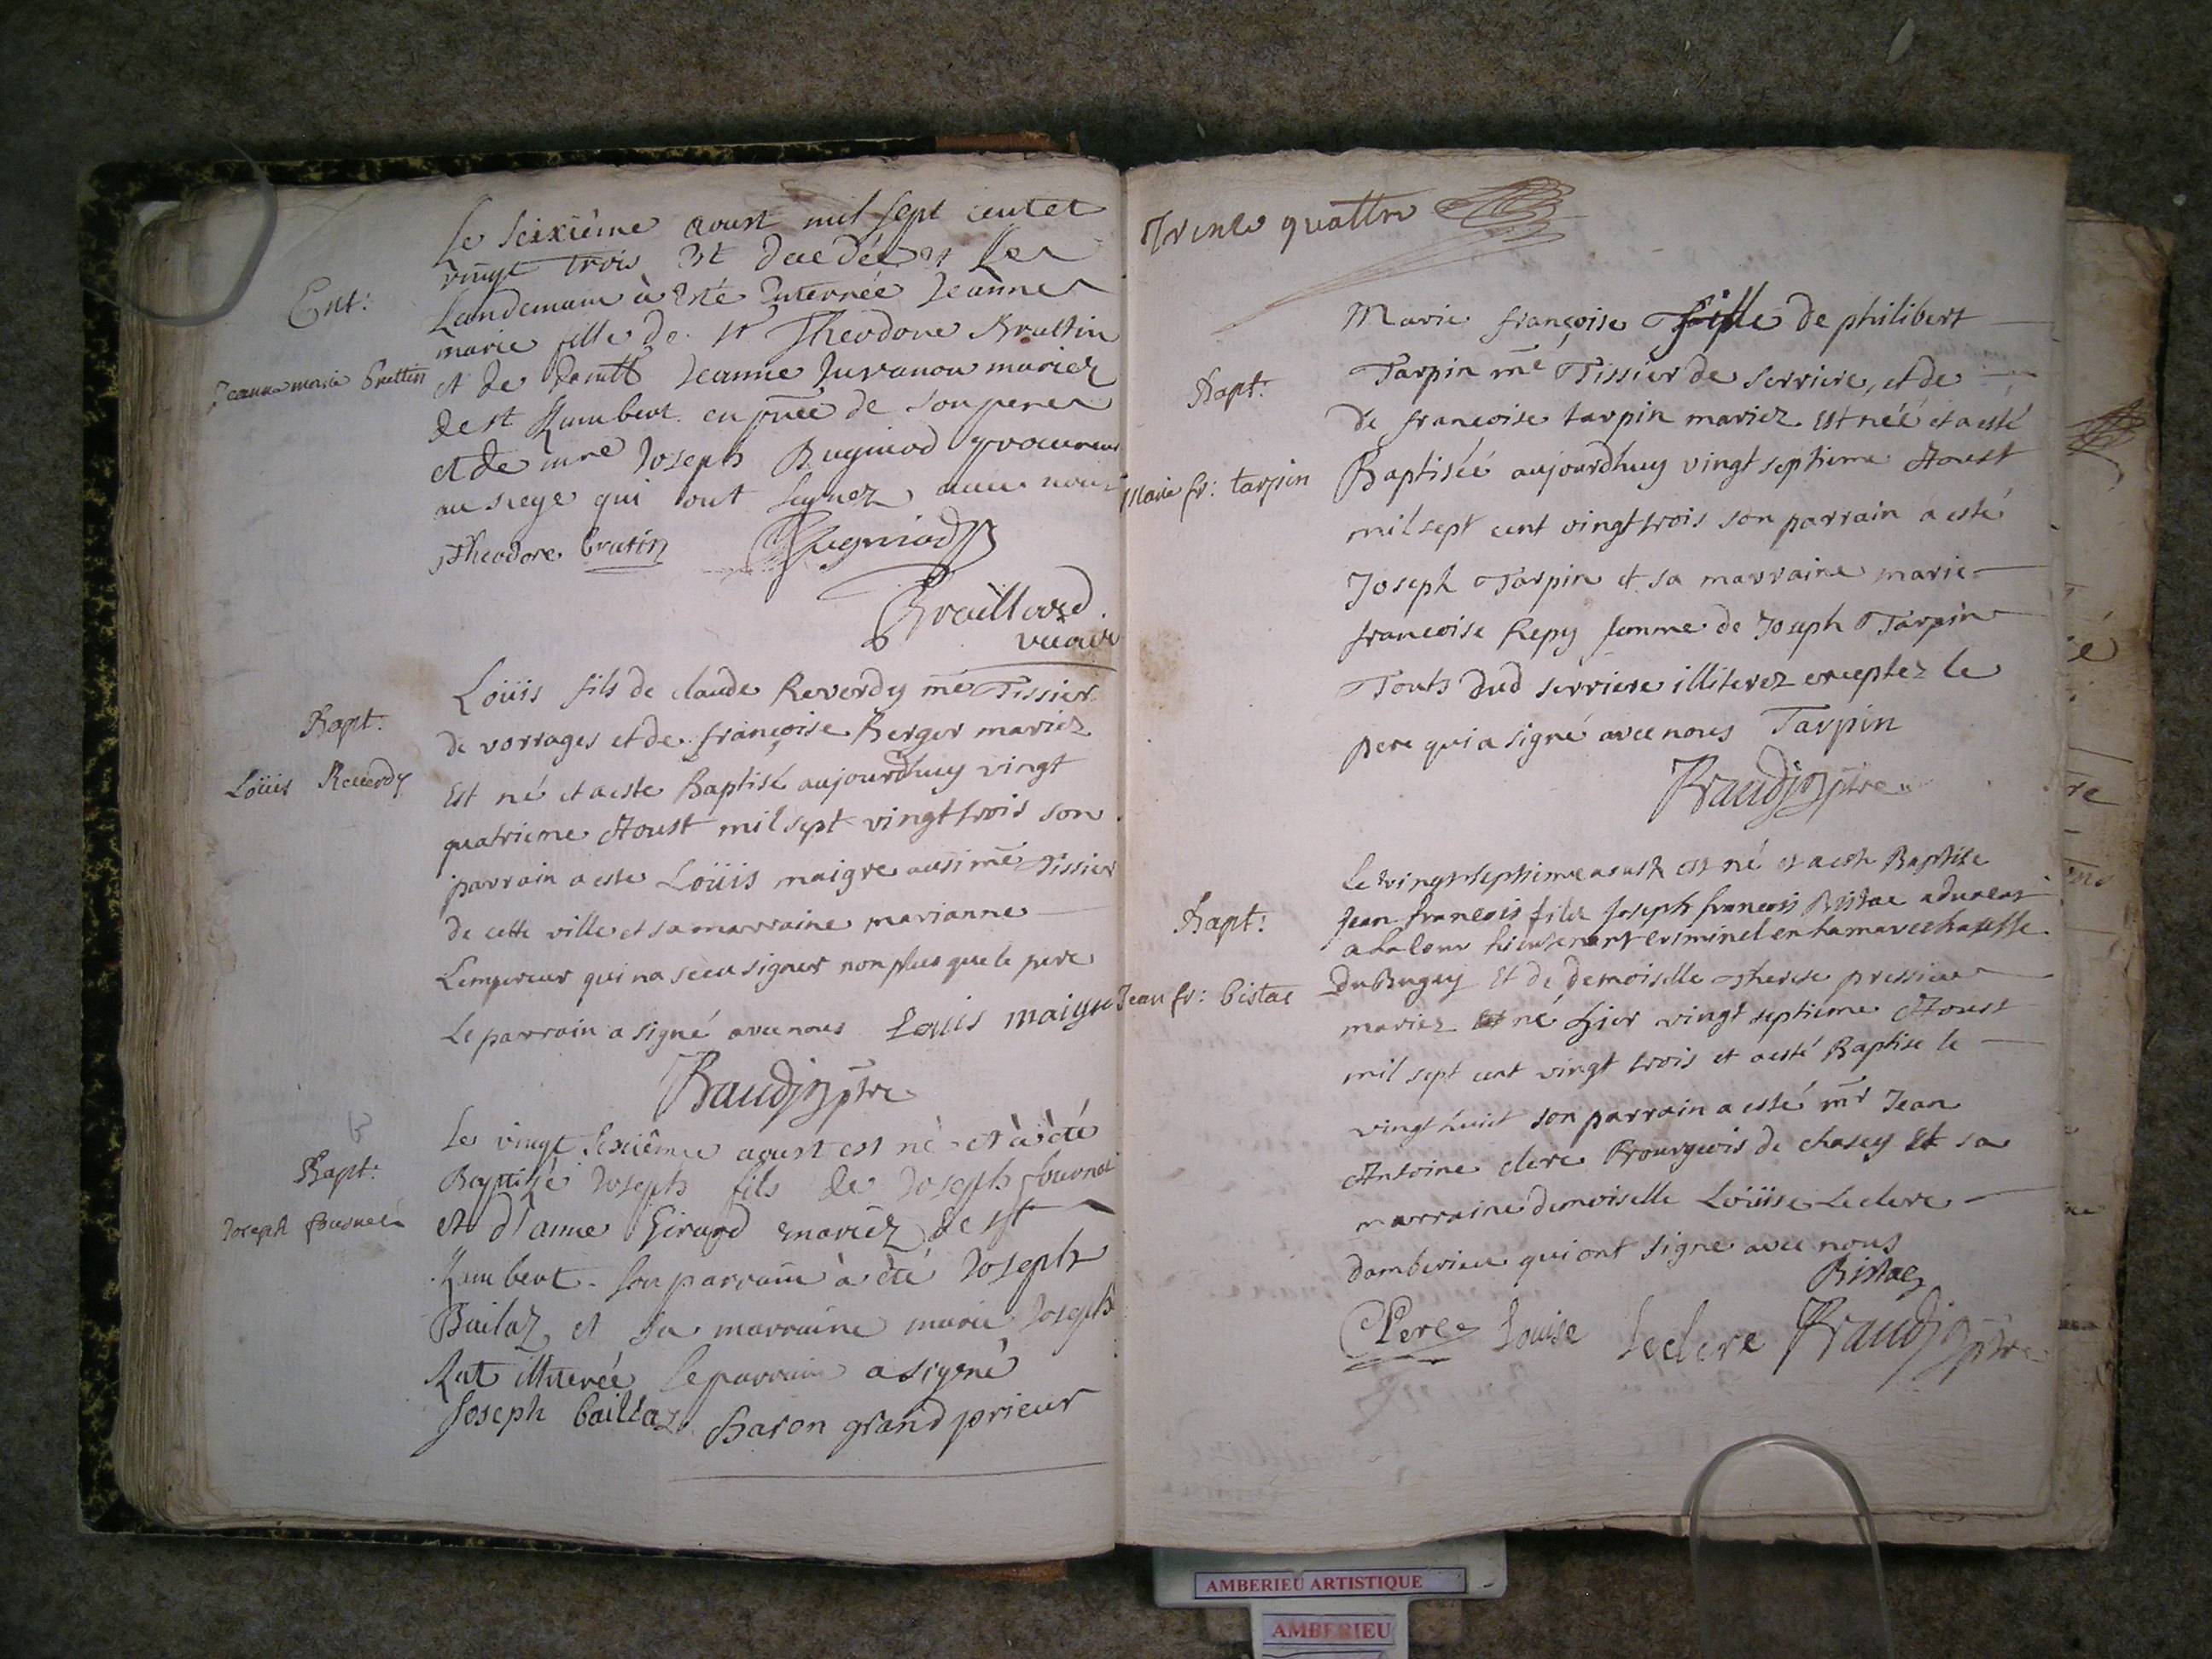 Le seixième aoust mil sept cent et
vingt trois Est decedée et Le
Landemain à esté Enterrée Jeanne
marie fille de sr Theodore Brattin
et de damlle Jeanne Juvanon mariez
de st Rambert en pnce de son pere
et de mre Joseph Bugniod procureur
au siege qui ont signez avec nous
Theodore bratin Bugniod
Braillard
vicaire
Ent:
Jeanne marie brattin
Loüis fils de claude Reverdy me Tissier
de vorrages et de françoise Berger mariez
Est né et a esté Baptisé aujourdhuy vingt
quatrieme Aoust mil sept vingt trois son
parrain a esté Loüis maigre aussi me Tissier
de cette ville et sa marraine marianne
Lempereur qui na sceu signer non plus que le pere
Le parrain a signé avec nous Louis maigre
Baudin ptre
Bapt:
Loüis Reverdy
Le vingt sexiême aoust est né et à été
Baptisé Joseph fils de Joseph fournet
et d'anne Girard mariez de st
Rambert. son parrain à été Joseph
Bailaz et sa marraine marie Joseph
Rat illiterée le parrain a signé
Joseph baillaz. Baron grand prieur
Bapt:
Joseph
Trente quattre
Marie françoise fille de philibert
Tarpin me Tissier de serriere, et de
de francoise tarpin mariez Est néé et a esté
Baptiséé aujourdhuy vingt septieme Aoust
mil sept cent vingt trois son parrain a esté
Joseph Tarpin et sa marraine marie
francoise Repy femme de Joseph Tarpin
Touts dud serriere illiterez exceptez le
pere qui a signé avec nous Tarpin
Baudin ptre
Bapt:
Marie fr: tarpin
Le vingt septieme aoust est né et a esté Baptise
Jean francois fils Joseph francois Bistac advocat
a la Cour lieutenant criminel en la marechaussée
du Bugey Et de demoiselle therese pressieu
mariez Est né hier vingt septieme Aoust
mil sept cent vingt trois et a esté Baptise le
vingt huit son parrain a esté mr Jean
Antoine clerc Bourgeois de chasey Et sa
marraine demoiselle Loüise Leclerc
damberieu qui ont signe avec nous
Bistac
Clerc Louise Leclerc Baudin ptre
Bapt:
Jean fr: bistac
AMBERIEU ARTISTIQUE
AMBERIEU